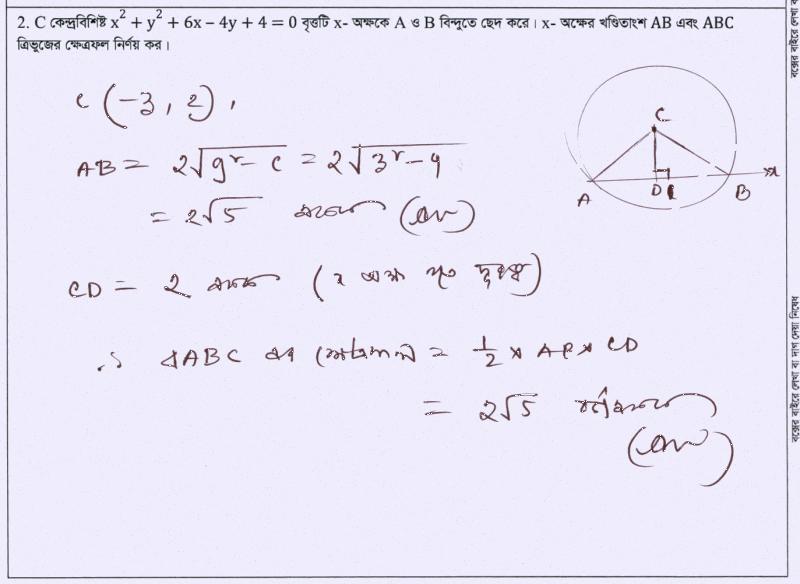 2. C কেন্দ্রবিশিষ্ট x² + y² + 6x − 4y + 4 = 0 বৃত্তটি x- অক্ষকে A ও B বিন্দুতে ছেদ করে। x- অক্ষের খণ্ডিতাংশ AB এবং ABC
ত্রিভুজের ক্ষেত্রফল নির্ণয় কর।
C (−3, 2),
AB = 2√g² − c = 2√3² − 4
= 2√5 একক (Ans)
CD = 2 একক (x অক্ষ হতে দূরত্ব)
∴ ΔABC এর ক্ষেত্রফল = 1/2 × AB × CD
= 2√5 বর্গএকক
(Ans)
C
A
D
B
x
বক্সের বাইরে লেখা বা দাগ দেয়া নিষেধ